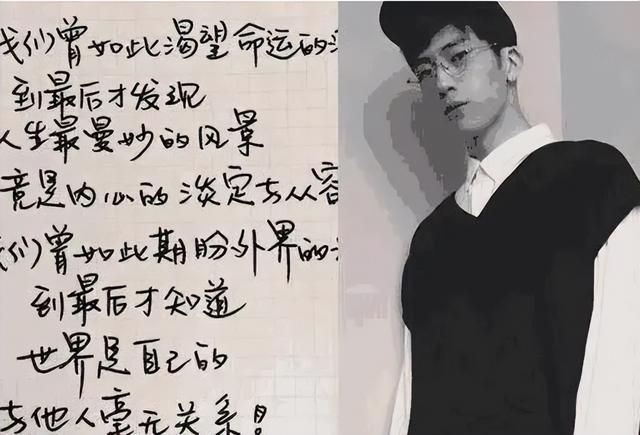 我们曾如此渴望命运的
到最后才发现
人生最曼妙的风景
竟是内心的淡定与从容
我们曾如此期盼外界的
到最后才知道
世界是自己的
与他人毫无关系!